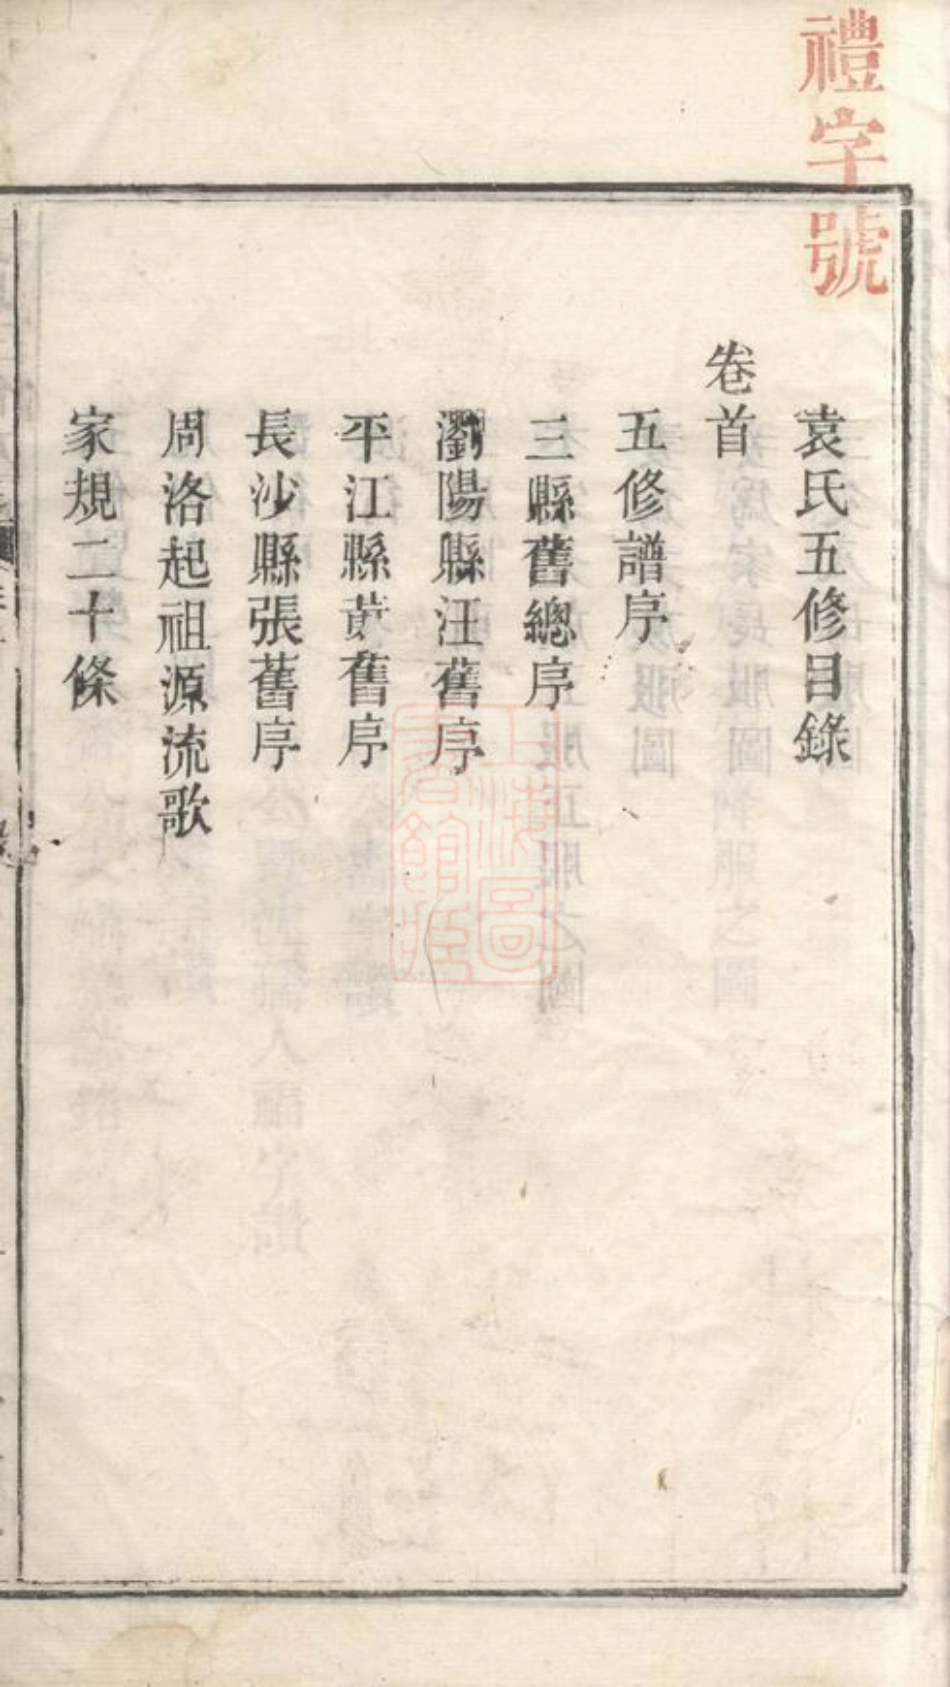 禮字號
袁氏五修目錄
卷首
五修譜序
三縣舊總序
瀏陽縣汪舊序
平江縣黃舊序
長沙縣張舊序
周洛起祖源流歌
家規二十條
上海圖書館藏